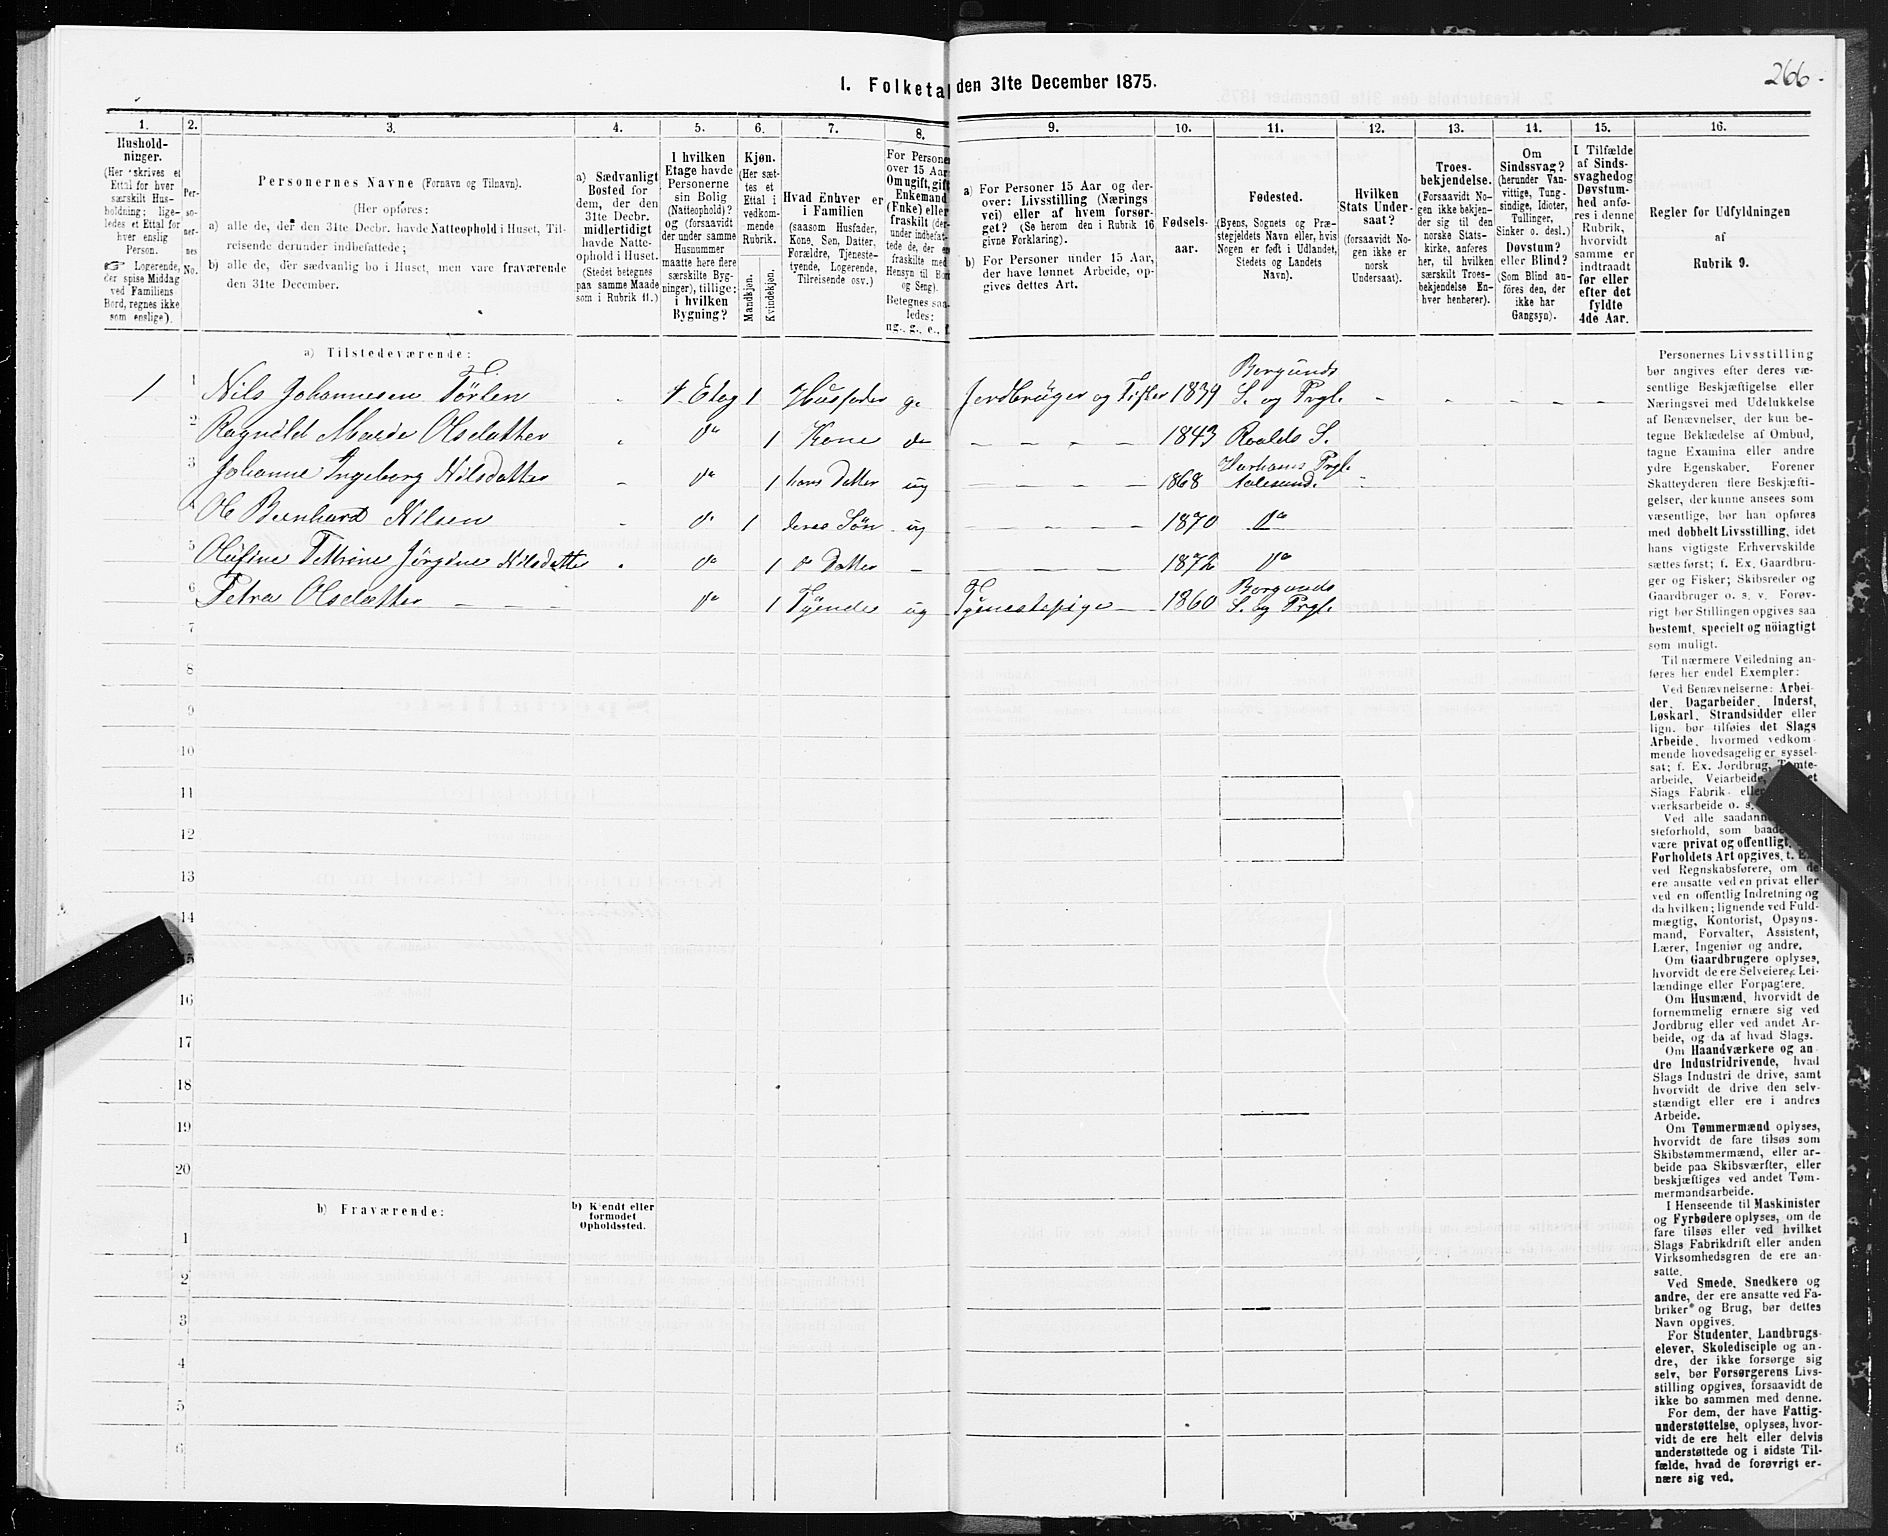 266.
1. Folketal den 31te December 1875.
1.
2.
3.
4.
5.
6.
7.
8.
9.
10.
11.
12.
13.
14.
15.
16.
Hushold-
ninger.
(Her skrives et
Ettal for hver
særskilt Hus-
holdning; lige-
ledes et Ettal for
hver enslig
Person.
☞ Logerende,
der spise Middag
ved Familiens
Bord, regnes ikke
som enslige).
Per-
so-
ner-
nes
No.
Personernes Navne (Fornavn og Tilnavn).
(Her opføres:
a) alle de, der den 31te Decbr. havde Natteophold i Huset, Til-
reisende derunder indbefattede;
b) alle de, der sædvanlig bo i Huset, men vare fraværende
den 31te December.
a) Sædvanligt
Bosted for
dem, der den
31te Decbr.
midlertidigt
havde Natte-
ophold i Huset.
(Stedet betegnes
paa samme Maade
som i Rubrik 11.)
I hvilken
Etage havde
Personerne
sin Bolig
(Natteophold)?
og (forsaavidt
der under samme
Husnummer
maatte høre flere
særskilte Byg-
ninger), tillige:
i hvilken
Bygning?
Kjøn.
(Her sæt-
tes et
Ettal i
vedkom-
mende
Rubrik.
Mandkjøn.
Kvindekjøn.
Hvad Enhver er
i Familien
(saasom Husfader,
Kone, Søn, Datter,
Forældre, Tjeneste-
tyende, Logerende,
Tilreisende osv.)
For Persone
over 15 Aar
Om ugift, gift
Enkemand
(Enke) eller
fraskilt (der-
under indbefat-
tede de, der er
fraskilte med
Hensyn til Bo
og Seng).
Betegnes saa-
ledes:
ug., g., e., f.
a) For Personer 15 Aar og der-
over: Livsstilling (Nærings
vei) eller af hvem forsør-
get? (Se herom den i Rubrik 16
givne Forklaring).
b) For Personer under 15 Aar,
der have lønnet Arbeide, op-
gives dettes Art.
Fødsels-
aar.
Fødested.
(Byens, Sognets og Præ-
stegjeldets Navn eller, hvis
Nogen er født i Udlandet,
Stedets og Landets
Navn).
Hvilken
Stats Under-
saat?
(forsaavidt No-
gen ikke er
norsk
Undersaat).
Troes-
bekjendelse.
(Forsaavidt No-
gen ikke bekjen-
der sig til den
norske Stats-
kirke, anføres
her, til hvilken
særskilt Troes-
bekjendelse En-
hver henhører).
Om
Sindssvag?
(herunder Van-
vittige, Tung-
sindige, Idioter,
Tullinger,
Sinker o. desl.)
Døvstum?
eller Blind?
(Som Blind an-
føres den, der
ikke har
Gangsyn).
I Tilfælde
af Sinds-
svaghed og
Døvstum-
hed anfø-
res i denne
Rubrik,
hvorvidt
samme er
indtraadt
før eller
efter det
fyldte
4de Aar.
Regler for Udfyldningen
af
Rubrik 9.
a) Tilstedeværende:
1 1 Nils Johannesen Tørlen 1. Etag 1 Husfader g. Jordbruger og Fisker 1839 Borgunds S. og Prgl.
2 Ragnild Marie Olsdatter do 1 Kone do 1843 Roalds S. Harhams Prgl.
3 Johanne Ingeborg Nilsdatter do 1 hans Datter ug 1868 Aalesund.
4 Ole Bernhard Nilsen do 1 deres Søn ug 1870 do
5 Olufine Tethrine Jørgine Nilsdatter do 1 do Datter 1872 do
6 Petra Olsdatter do 1 Tyende ug Tjenestepige 1860 Borgunds S. og Prgl.
7
8
9
10
11
12
13
14
15
16
17
18
19
20
b) Fraværende:
b) Kjendt eller
formodet
Opholdssted.
1
2
3
4
5
6
Personernes Livsstilling
bør angives efter deres væ-
sentlige Beskjæftigelse eller
Næringsvei med Udelukkelse
af Benævnelser, der kun be-
tegne Beklædelse af Ombud,
tagne Examina eller andre
ydre Egenskaber. Forener
Skatteyderen flere Beskjæfti-
gelser, der kunne ansees som
væsentlige, bør han opføres
med dobbelt Livsstilling, idet
hans vigtigste Erhvervskilde
sættes først; f. Ex. Gaardbru-
ger og Fisker; Skibsreder og
Gaardbruger o. s. v. Forøv-
rigt bør Stillingen opgives saa
bestemt, specielt og nöiagtigt
som muligt.
Til nærmere Veiledning an-
føres her endel Exempler:
Ved Benævnelserne: Arbei-
der, Dagarbeider, Inderst,
Løskarl, Strandsidder eller
lign. bør tilføies det Slags
Arbeide, hvormed vedkom-
mende hovedsagelig er syssel-
sat; f. Ex. Jordbrug, Tømte-
arbeide, Veiarbeide,
Slags Fabrik- eller
værksarbeide o. s.
Ved alle saadanne
steforhold, som baade
være privat og offentligt,
Forholdets Art opgives, t. Ex.
ved Regnskabsførere, om de
ere ansatte ved en privat eller
ved en offentlig Indretning og
da hvilken; lignende ved Fuld-
mægtig, Kontorist, Opsyns-
mand, Forvalter, Assistent,
Lærer, Ingeniør og andre.
Om Gaardbrugere oplyses,
hvorvidt de ere Selveiere, Lei-
lændinge eller Forpagtere.
Om Husmænd, hvorvidt de
fornemmelig ernære sig ved
Jordbrug eller ved andet Ar-
beide, og da af hvad Slags.
Om Haandværkere og an
dre Industridrivende, hvad
Slags Industri de drive, samt
hvorvidt de drive den selv-
stændigt eller ere i andres
Arbeide.
Om Tømmermænd oplyses,
hvorvidt de fare tilsøs som
Skibstømmermænd, eller ar-
beide paa Skibsværfter, eller
beskjæftiges ved andet Tøm-
mermandsarbeide.
I Henseende til Maskinister
og Fyrbødere oplyses, om de
fare tilsøs eller ved hvilket
Slags Fabrikdrift eller anden
Virksomhedsgren de ere an-
satte.
Ved Smede, Snedkere og
andre, der ere ansatte ved Fa-
briker og Brug, bør dettes
Navn opgives.
For Studenter, Landbrugs-
elever, Skoledisciple og an-
dre, der ikke forsørge sig
selv, bør Forsørgerens Livs-
stilling opgives, forsaavidt de
ikke bo sammen med denne.
For dem, der have Fattig-
understøttelse, oplyses, hvor-
vidt de ere helt eller delvis
understøttede og i sidste Til-
fælde, hvad de forøvrigt er-
nære sig ved.